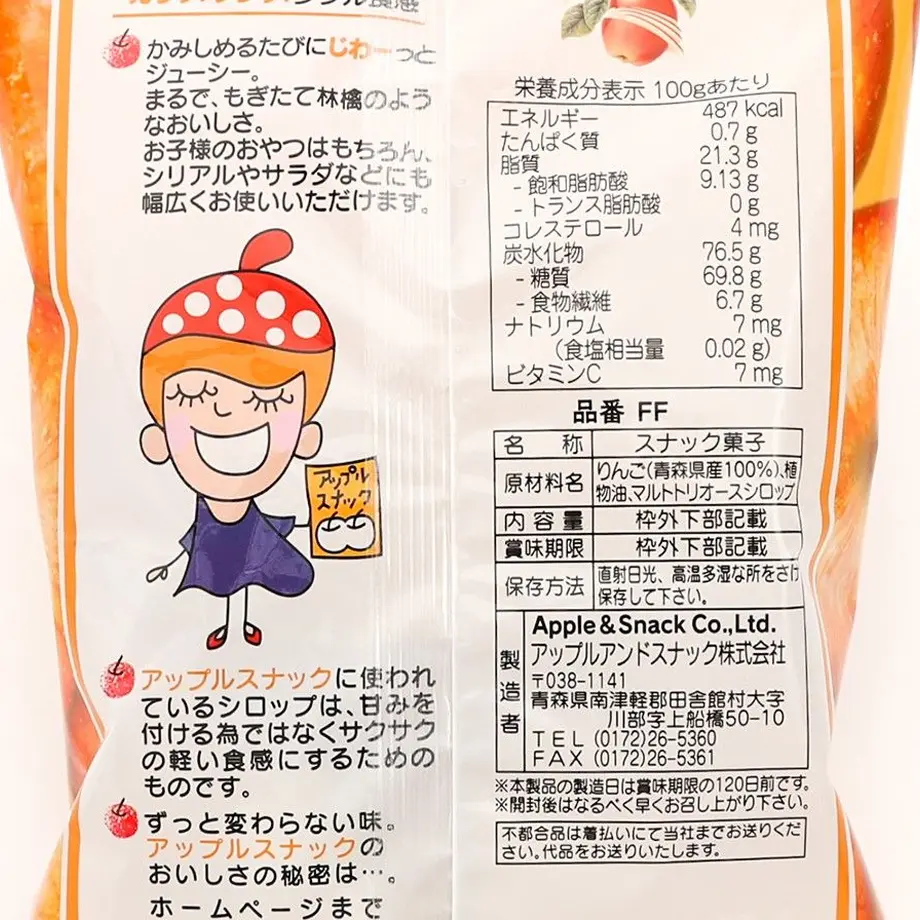 かみしめるたびにじわーっと
ジューシー。
まるで、もぎたて林檎のよう
なおいしさ。
お子様のおやつはもちろん、
シリアルやサラダなどにも
幅広くお使いいただけます。
アップル
スナック
アップルスナックに使われ
ているシロップは、甘みを
付ける為ではなくサクサク
の軽い食感にするための
ものです。
ずっと変わらない味。
アップルスナックの
おいしさの秘密は…。
ホームページまで
栄養成分表示 100gあたり
エネルギー 487 kcal
たんぱく質 0.7 g
脂質 21.3 g
- 飽和脂肪酸 9.13 g
- トランス脂肪酸 0 g
コレステロール 4 mg
炭水化物 76.5 g
- 糖質 69.8 g
- 食物繊維 6.7 g
ナトリウム 7 mg
(食塩相当量 0.02 g)
ビタミンC 7 mg
品番 FF
名称 スナック菓子
原材料名 りんご(青森県産100%)、植
物油、マルトトリオースシロップ
内容量 枠外下部記載
賞味期限 枠外下部記載
保存方法 直射日光、高温多湿な所をさけ
保存して下さい。
製造者 Apple&Snack Co.,Ltd.
アップルアンドスナック株式会社
〒038-1141
青森県南津軽郡田舎館村大字
川部字上船橋50-10
TEL (0172)26-5360
FAX (0172)26-5361
※本製品の製造日は賞味期限の120日前です。
※開封後はなるべく早くお召し上がり下さい。
不都合品は着払いにて当社までお送りくだ
さい。代品をお送りいたします。